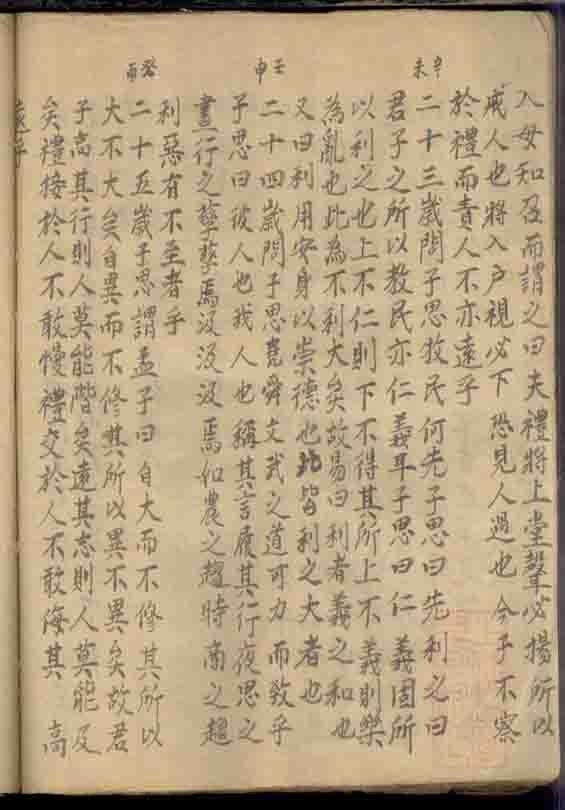 辛未
壬申
癸酉
入母知召而謂之曰夫禮將上堂聲必揚所以
戒人也將入户視必下恐見人過也今子不察
於禮而責人不亦遠乎
二十三歲問子思牧民何先子思曰先利之曰
君子之所以教民亦仁義耳子思曰仁義固所
以利之也上不仁則下不得其所上不義則樂
為亂也此為不利大矣故易曰利者義之和也
又曰利用安身以崇德也此皆利之大者也
二十四歲問子思堯舜文武之道可力而致乎
子思曰彼人也我人也稱其言履其行夜思之
晝行之孳孳焉汲汲焉如農之趨時商之趨
利惡有不至者乎
二十五歲子思謂孟子曰自大而不修其所以
大不大矣自異而不修其所以異不異矣故君
子高其行則人莫能階矣遠其志則人莫能及
矣禮接於人不敢慢禮交於人不敢侮其高
遠乎